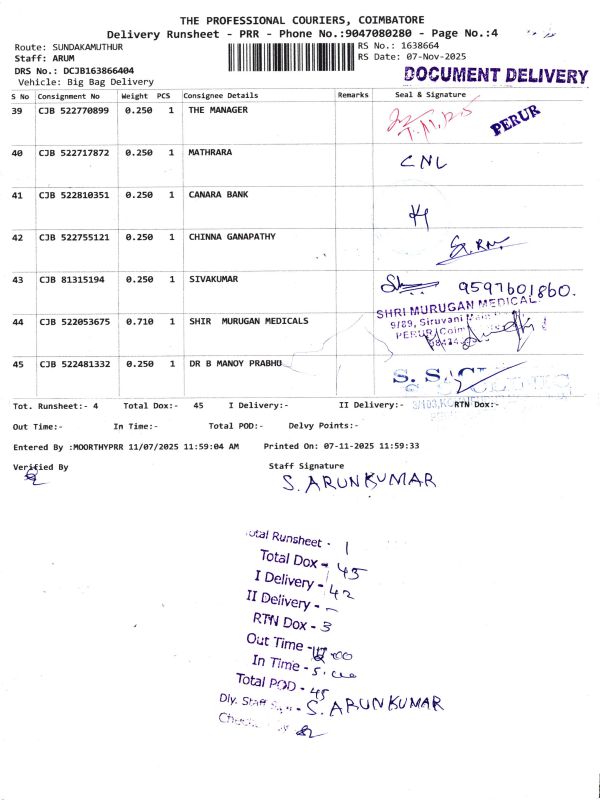 THE PROFESSIONAL COURIERS, COIMBATORE
Delivery Runsheet - PRR - Phone No.:9047080280 - Page No.:4
Route: SUNDAKAMUTHUR RS No.: 1638664
Staff: ARUM RS Date: 07-Nov-2025
DRS No.: DCJB163866404 DOCUMENT DELIVERY
Vehicle: Big Bag Delivery
S No Consignment No Weight PCS Consignee Details Remarks Seal & Signature
39 CJB 522770899 0.250 1 THE MANAGER PERUR
40 CJB 522717872 0.250 1 MATHRARA CNL
41 CJB 522810351 0.250 1 CANARA BANK
42 CJB 522755121 0.250 1 CHINNA GANAPATHY
43 CJB 81315194 0.250 1 SIVAKUMAR 9597601860.
44 CJB 522053675 0.710 1 SHIR MURUGAN MEDICALS SHRI MURUGAN MEDICAL
9/89, Siruvani
PERUR
45 CJB 522481332 0.250 1 DR B MANOY PRABHU
Tot. Runsheet:- 4 Total Dox:- 45 I Delivery:- II Delivery:- RTN Dox:-
Out Time:- In Time:- Total POD:- Delvy Points:-
Entered By :MOORTHYPRR 11/07/2025 11:59:04 AM Printed On: 07-11-2025 11:59:33
Verified By Staff Signature
S. ARUNKUMAR
Total Runsheet - 1
Total Dox - 45
I Delivery - 42
II Delivery - -
RTN Dox - 3
Out Time -
In Time -
Total POD - 45
Dly. Staff S. ARUNKUMAR